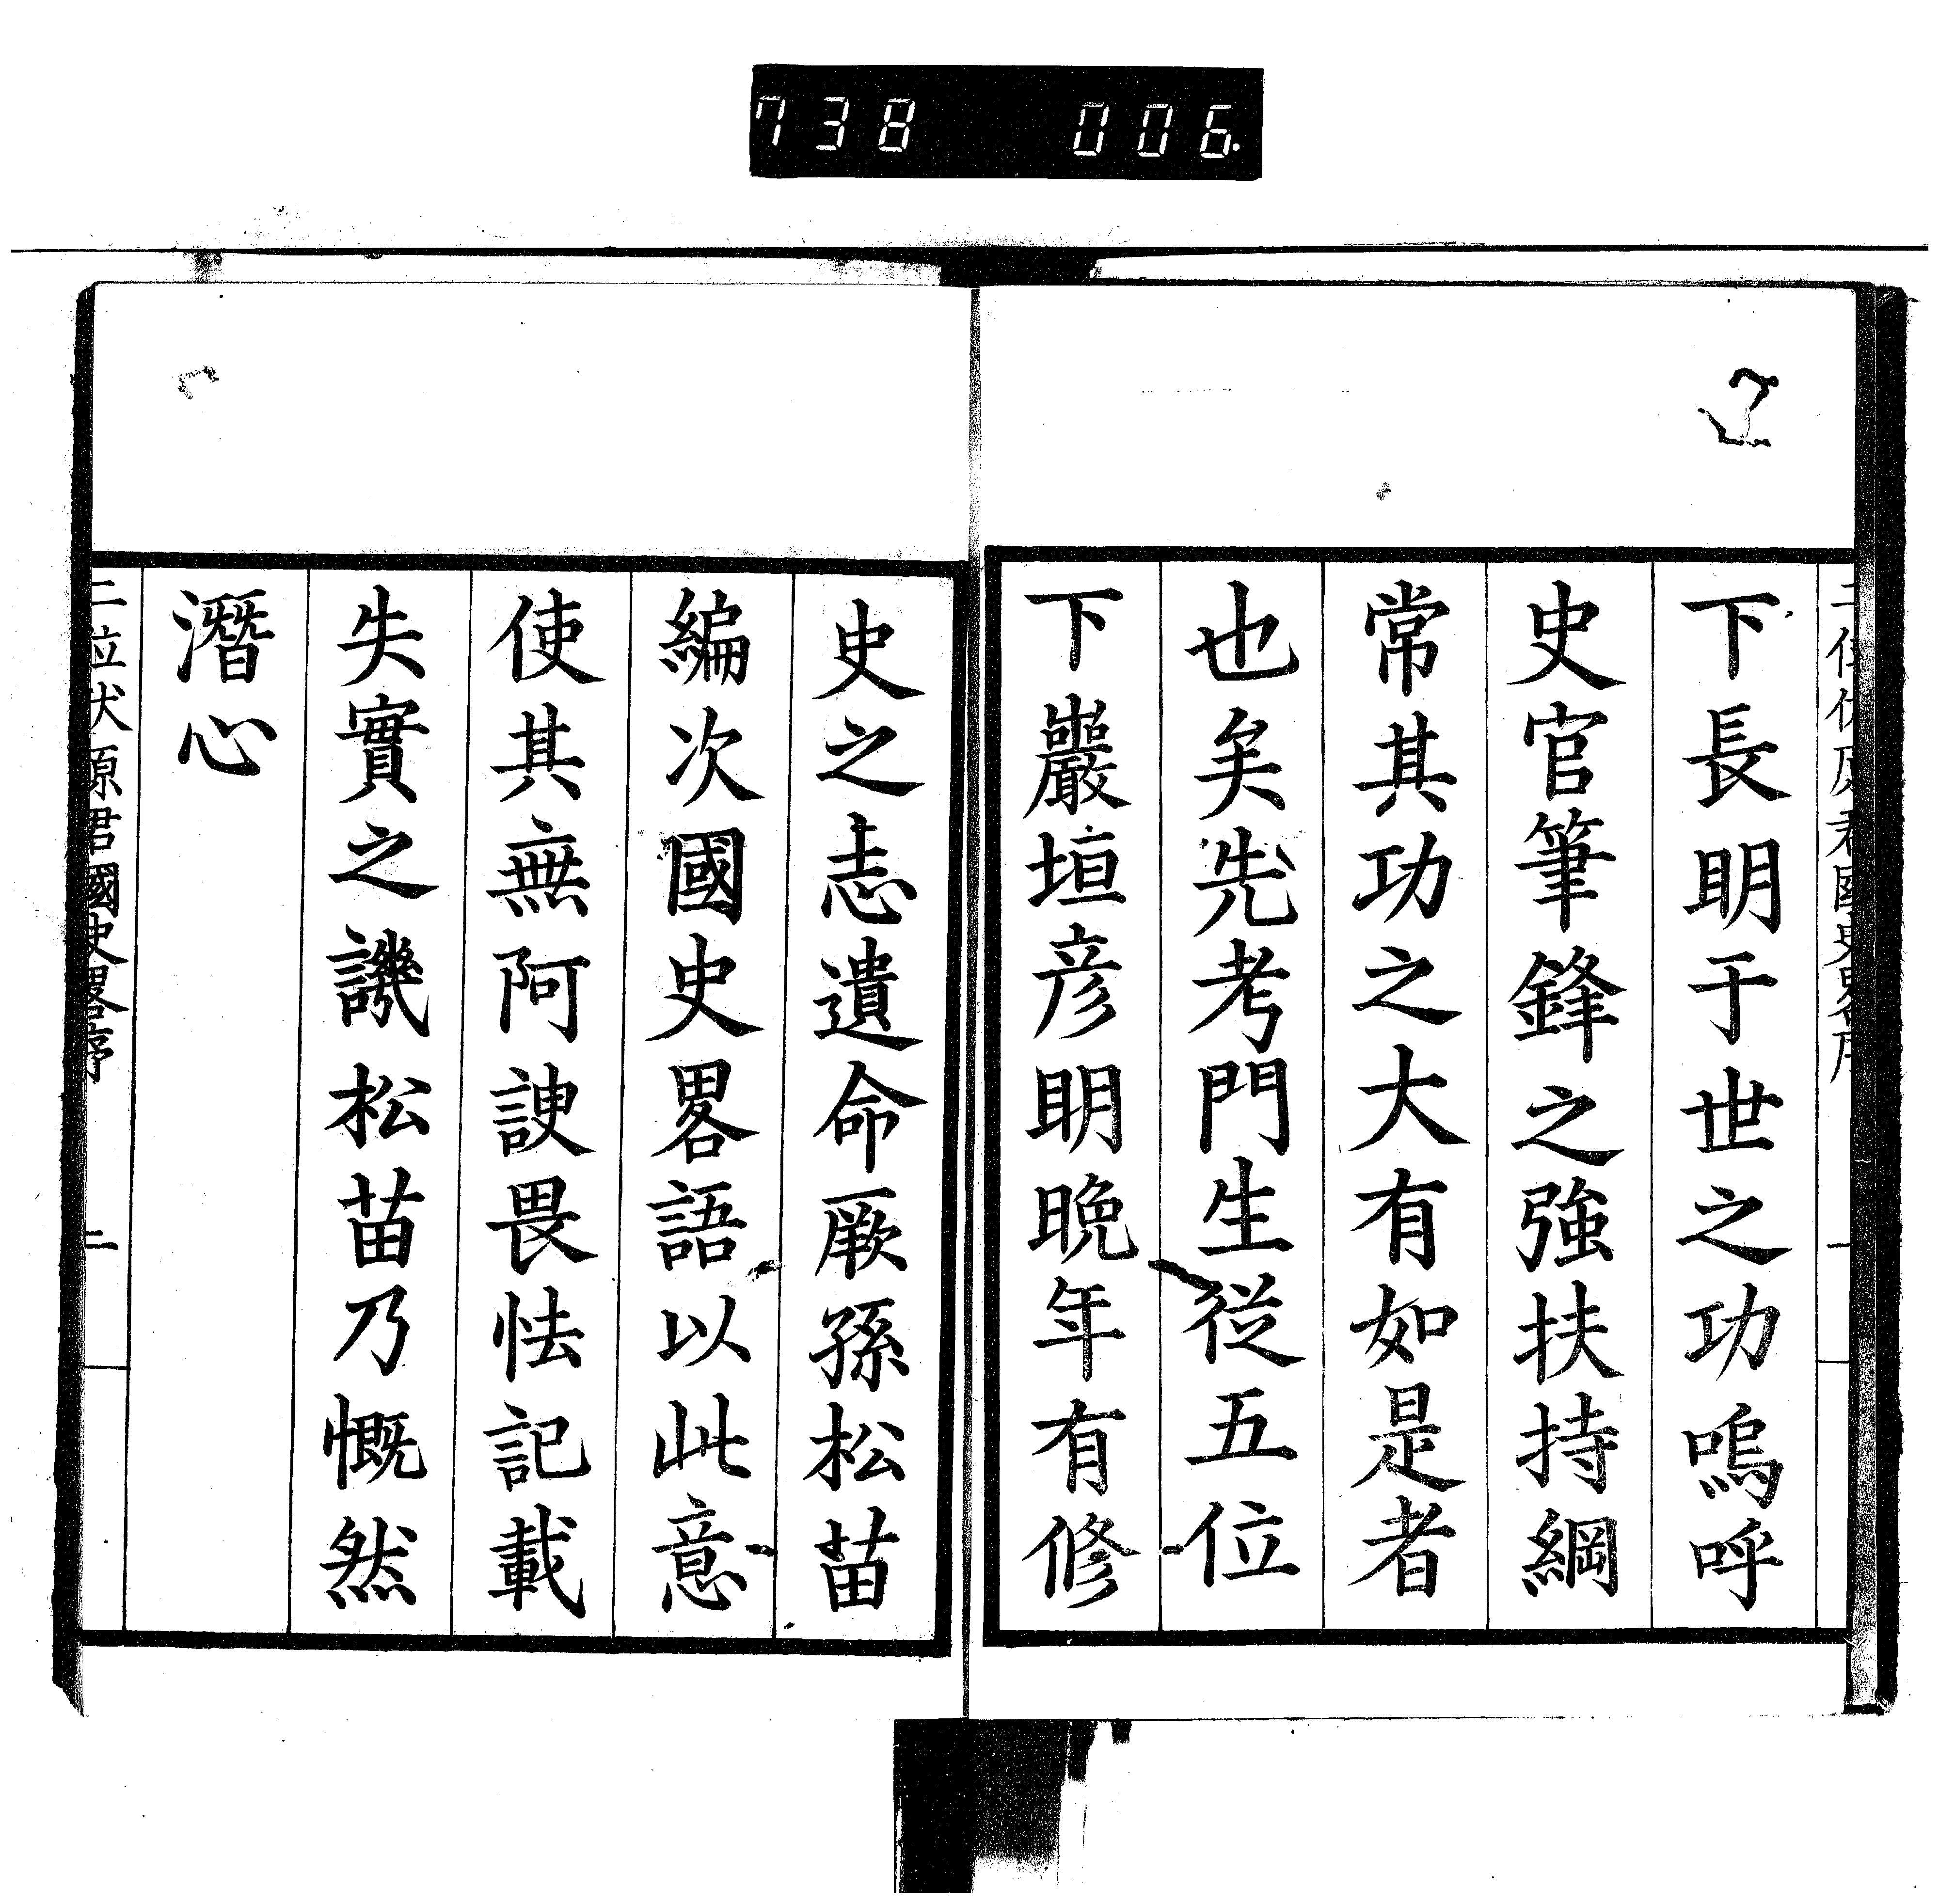 738 006.
二位伏原君國史畧序 一
下長明于世之功嗚呼
史官筆鋒之強扶持綱
常其功之大有如是者
也矣先考門生従五位
下巖垣彦明晩年有修
史之志遺命厥孫松苗
編次國史畧語以此意
使其無阿諛畏怯記載
失實之譏松苗乃慨然
潛心
二位伏原君國史畧序 二